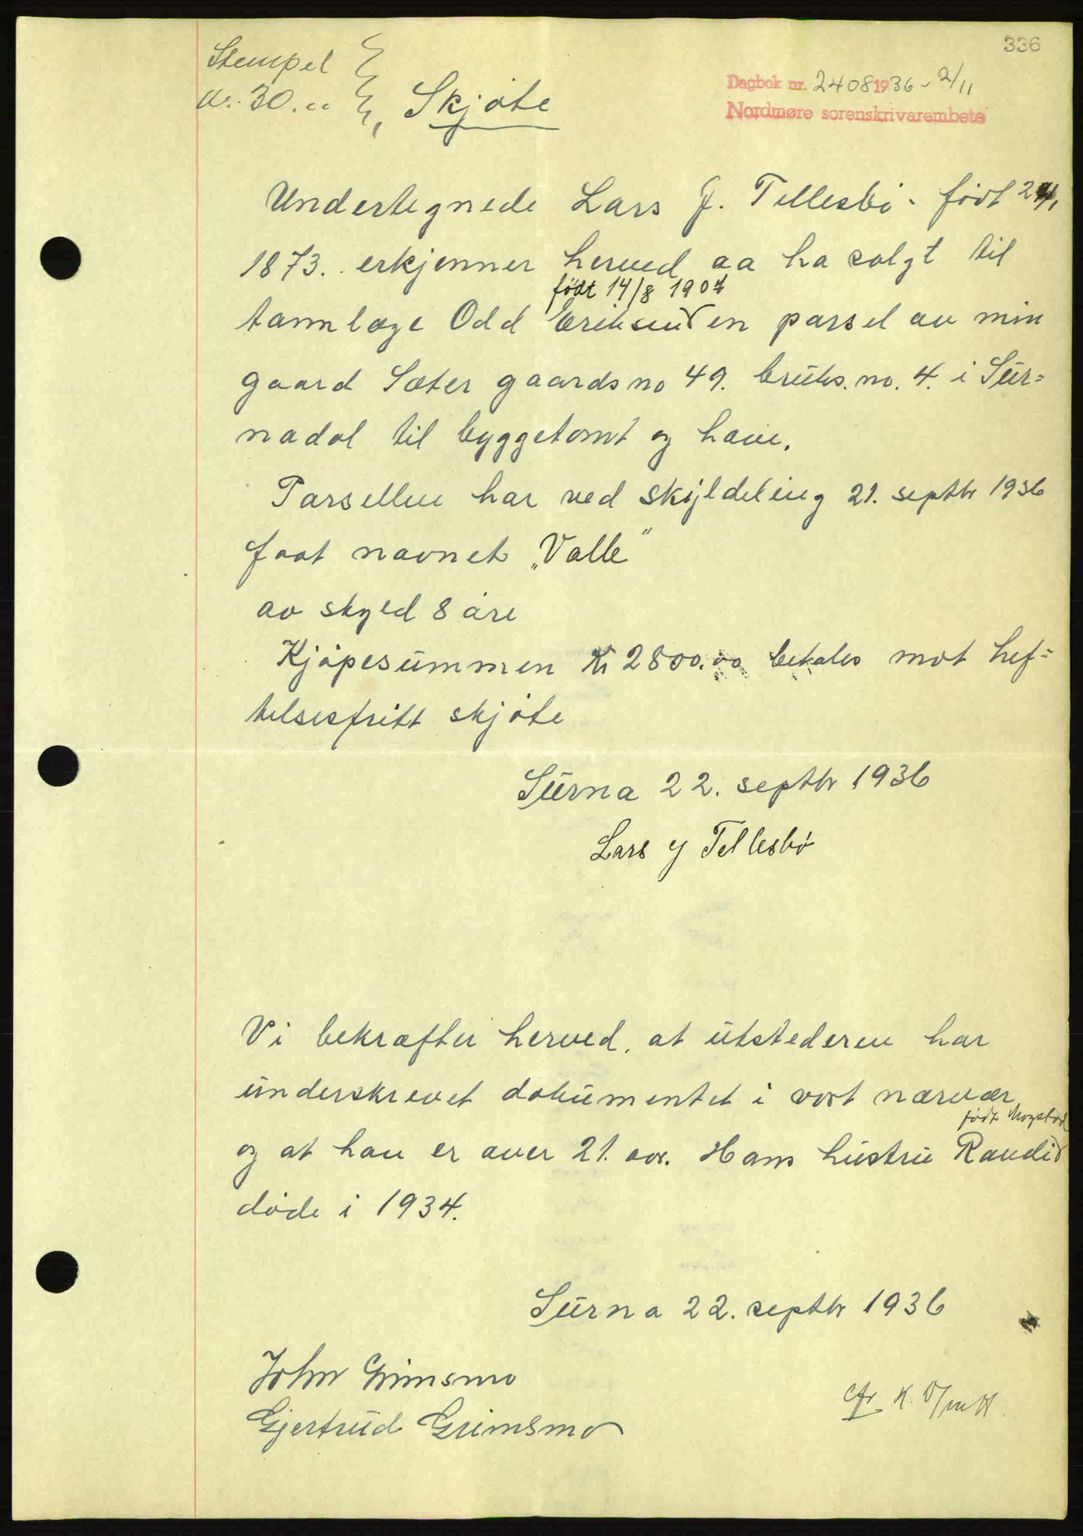 336
Stempel
kr. 30.00
Skjøte
Dagbok nr. 2408 1936 - 2/11
Nordmøre sorenskrivarembete
Undertegnede Lars J. Tellesbø. født 24/1
1873. erkjenner herved aa ha solgt til
født 14/8 1907
tannlæge Odd Eriksen en parsel av min
gaard Sæter gaardsno 49. bruks.no. 4. i Sur=
nadal til byggetomt og have.
Parsellen har ved skyldeling 21. septbr 1936
faat navnet „Valle"
av skyld 8 øre
Kjøpesummen Kr 2800.00 betales mot hef=
telsesfritt skjøte
Surna 22. septbr 1936
Lars J Tellesbø
Vi bekræfter herved, at utstederen har
underskrevet dokumentet i vort nærvær,
født Mogstad
og at han er over 21. aar. Hans hustru Randi
døde i 1934.
Surna 22. septbr 1936
John Grimsmo
Gjertrud Grimsmo